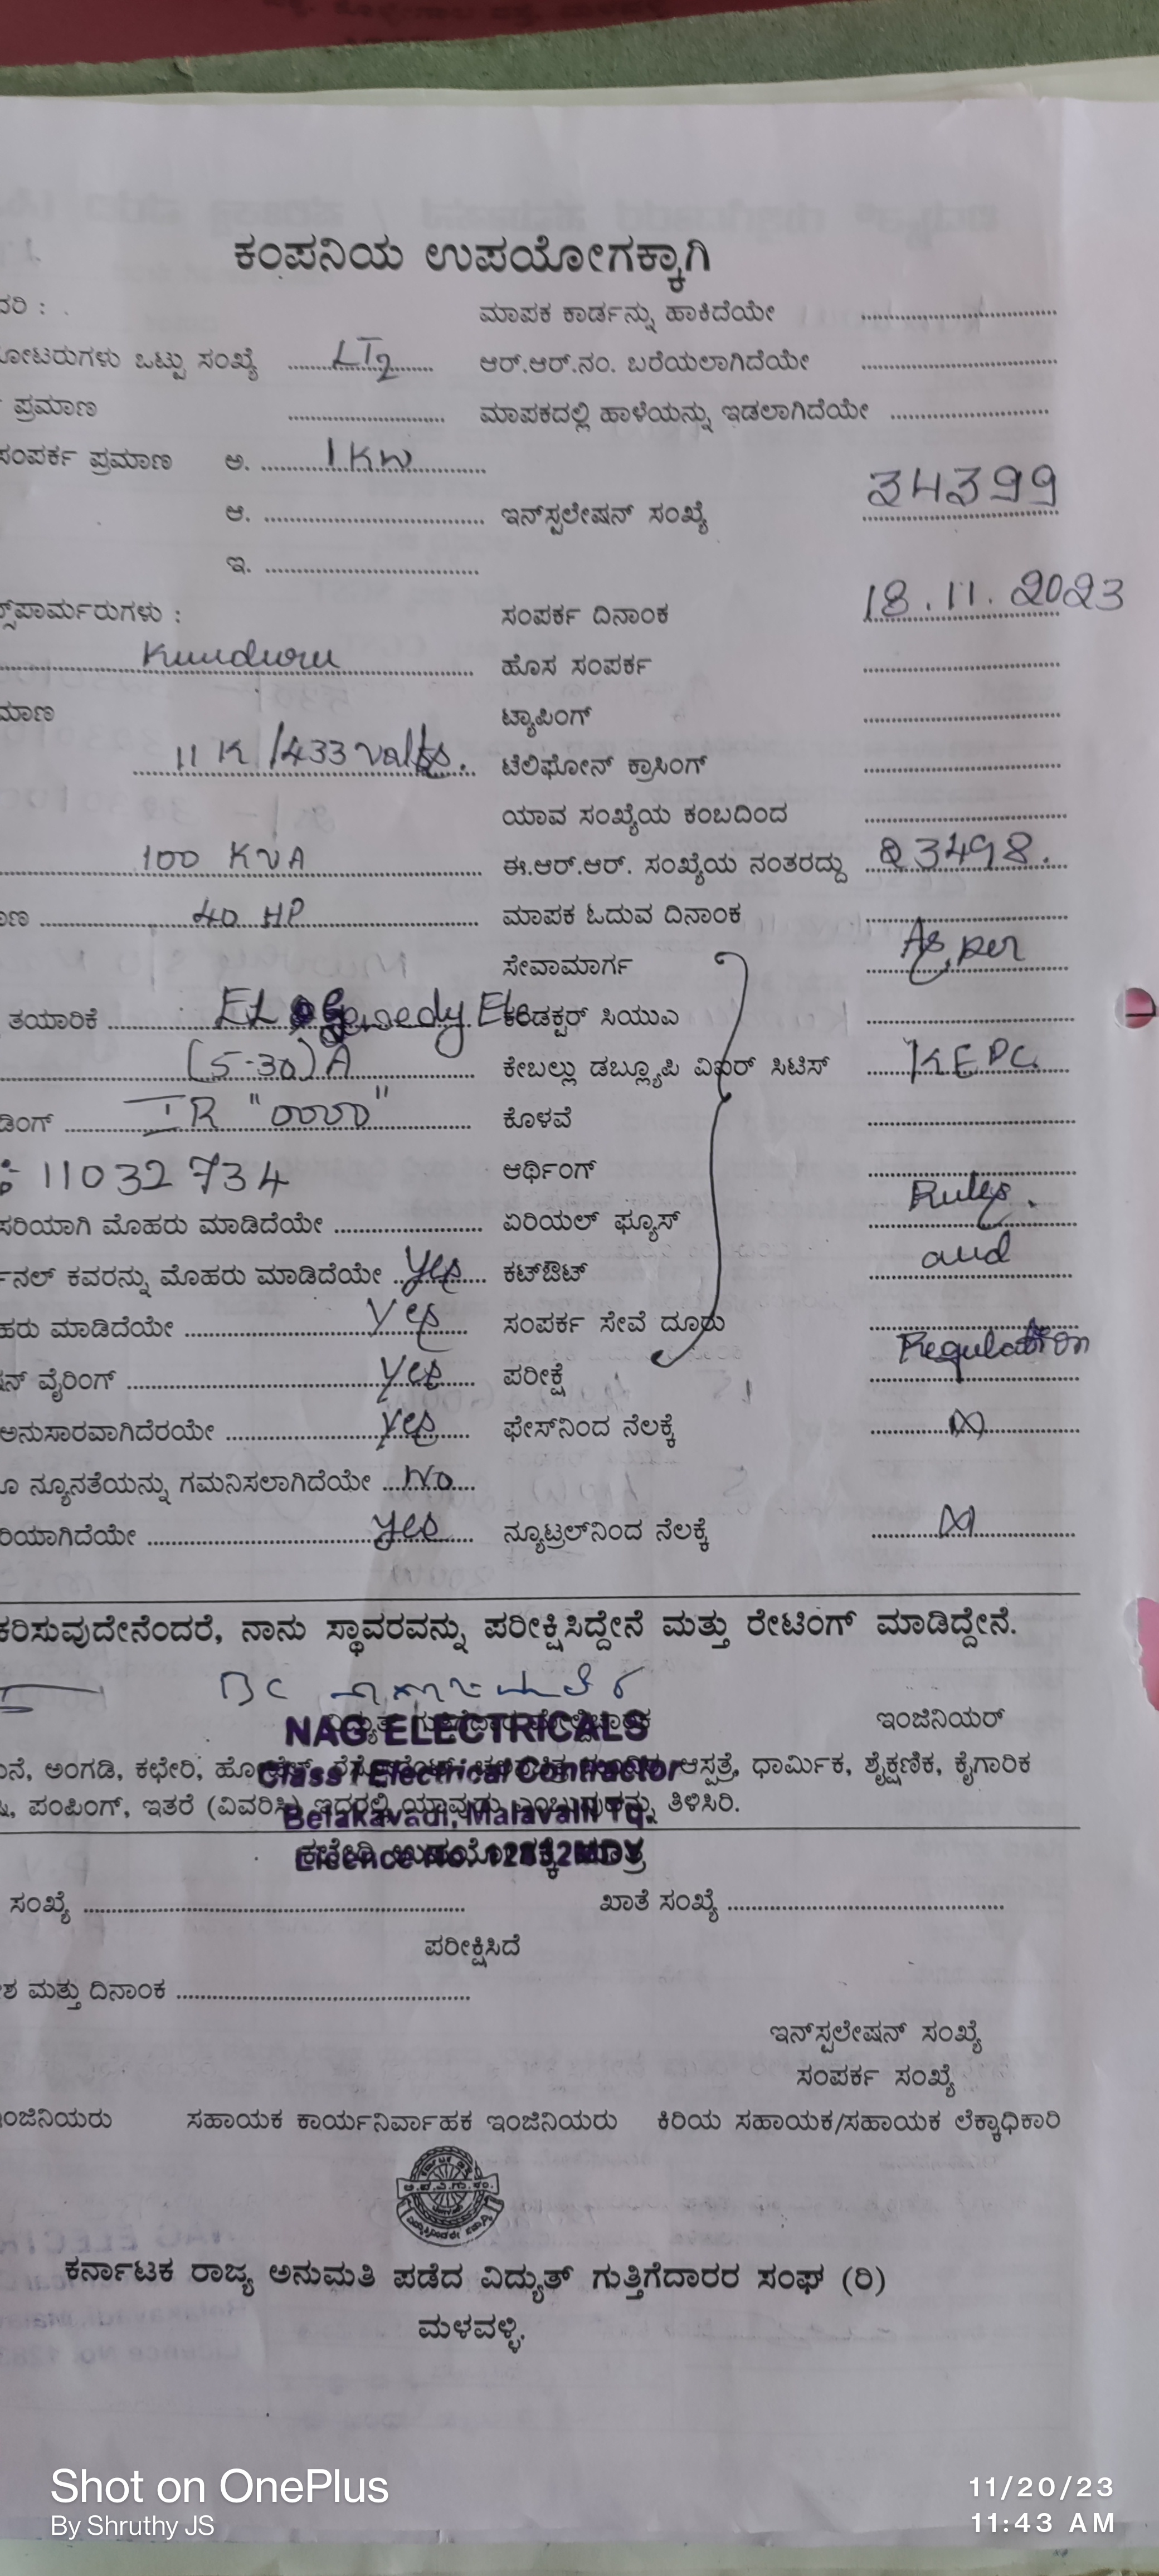 ಕಂಪನಿಯ ಉಪಯೋಗಕ್ಕಾಗಿ
ದರಿ : ಮಾಪಕ ಕಾರ್ಡನ್ನು ಹಾಕಿದೆಯೇ ....................
ೋಟರುಗಳು ಒಟ್ಟು ಸಂಖ್ಯೆ LT2 ಆರ್.ಆರ್.ನಂ. ಬರೆಯಲಾಗಿದೆಯೇ ....................
ಪ್ರಮಾಣ .................... ಮಾಪಕದಲ್ಲಿ ಹಾಳೆಯನ್ನು ಇಡಲಾಗಿದೆಯೇ ....................
ಸಂಪರ್ಕ ಪ್ರಮಾಣ ಅ. 1 KW
ಆ. .................... ಇನ್‌ಸ್ಟಲೇಷನ್ ಸಂಖ್ಯೆ 34399
ಇ. ....................
ಸ್‌ಪಾರ್ಮರುಗಳು : ಸಂಪರ್ಕ ದಿನಾಂಕ 18.11.2023
Kunduru ಹೊಸ ಸಂಪರ್ಕ ....................
ಮಾಣ ಟ್ಯಾಪಿಂಗ್ ....................
11 K /433 valts. ಟೆಲಿಫೋನ್ ಕ್ರಾಸಿಂಗ್ ....................
ಯಾವ ಸಂಖ್ಯೆಯ ಕಂಬದಿಂದ ....................
100 KVA ಈ.ಆರ್.ಆರ್. ಸಂಖ್ಯೆಯ ನಂತರದ್ದು 23498.
ಣ 40 HP ಮಾಪಕ ಓದುವ ದಿನಾಂಕ ....................
ಸೇವಾಮಾರ್ಗ As per
ತಯಾರಿಕೆ ಕಂಡಕ್ಟರ್ ಸಿಯುಎ ....................
(5-30)A ಕೇಬಲ್ಲು ಡಬ್ಲ್ಯೂಪಿ ವಿಐರ್ ಸಿಟಿಸ್ KEPC
ಡಿಂಗ್ IR "0000" ಕೊಳವೆ ....................
: 11032734 ಆರ್ಥಿಂಗ್ ....................
ಸರಿಯಾಗಿ ಮೊಹರು ಮಾಡಿದೆಯೇ .................... ಏರಿಯಲ್ ಫ್ಯೂಸ್ Rules.
ನಲ್ ಕವರನ್ನು ಮೊಹರು ಮಾಡಿದೆಯೇ Yes ಕಟ್‌ಔಟ್ and
ಹರು ಮಾಡಿದೆಯೇ Yes ಸಂಪರ್ಕ ಸೇವೆ ದೂರು ....................
ನ್ ವೈರಿಂಗ್ Yes ಪರೀಕ್ಷೆ Regulation
ಅನುಸಾರವಾಗಿದೆರಯೇ Yes ಫೇಸ್‌ನಿಂದ ನೆಲಕ್ಕೆ
ೂ ನ್ಯೂನತೆಯನ್ನು ಗಮನಿಸಲಾಗಿದೆಯೇ No
ರಿಯಾಗಿದೆಯೇ Yes ನ್ಯೂಟ್ರಲ್‌ನಿಂದ ನೆಲಕ್ಕೆ
ಕರಿಸುವುದೇನೆಂದರೆ, ನಾನು ಸ್ಥಾವರವನ್ನು ಪರೀಕ್ಷಿಸಿದ್ದೇನೆ ಮತ್ತು ರೇಟಿಂಗ್ ಮಾಡಿದ್ದೇನೆ.
NAG ELECTRICALS ಇಂಜಿನಿಯರ್
ನೆ, ಅಂಗಡಿ, ಕಛೇರಿ, ಆಸ್ಪತ್ರೆ, ಧಾರ್ಮಿಕ, ಶೈಕ್ಷಣಿಕ, ಕೈಗಾರಿಕ
Class I Electrical Contractor
ಪಂಪಿಂಗ್, ಇತರೆ (ವಿವರಿಸಿ) ಇದರಲ್ಲಿ ಯಾವುದು ಎಂಬುದನ್ನು ತಿಳಿಸಿರಿ.
Belakavadi, Malavalli Tq.
Licence No. 12832MDY
ಸಂಖ್ಯೆ .................... ಖಾತೆ ಸಂಖ್ಯೆ ....................
ಪರೀಕ್ಷಿಸಿದೆ
ಶ ಮತ್ತು ದಿನಾಂಕ ....................
ಇನ್‌ಸ್ಟಲೇಷನ್ ಸಂಖ್ಯೆ
ಸಂಪರ್ಕ ಸಂಖ್ಯೆ
ಂಜಿನಿಯರು ಸಹಾಯಕ ಕಾರ್ಯನಿರ್ವಾಹಕ ಇಂಜಿನಿಯರು ಕಿರಿಯ ಸಹಾಯಕ/ಸಹಾಯಕ ಲೆಕ್ಕಾಧಿಕಾರಿ
ಕರ್ನಾಟಕ ರಾಜ್ಯ ಅನುಮತಿ ಪಡೆದ ವಿದ್ಯುತ್ ಗುತ್ತಿಗೆದಾರರ ಸಂಘ (ರಿ)
ಮಳವಳ್ಳಿ.
Shot on OnePlus
By Shruthy JS
11/20/23
11:43 AM